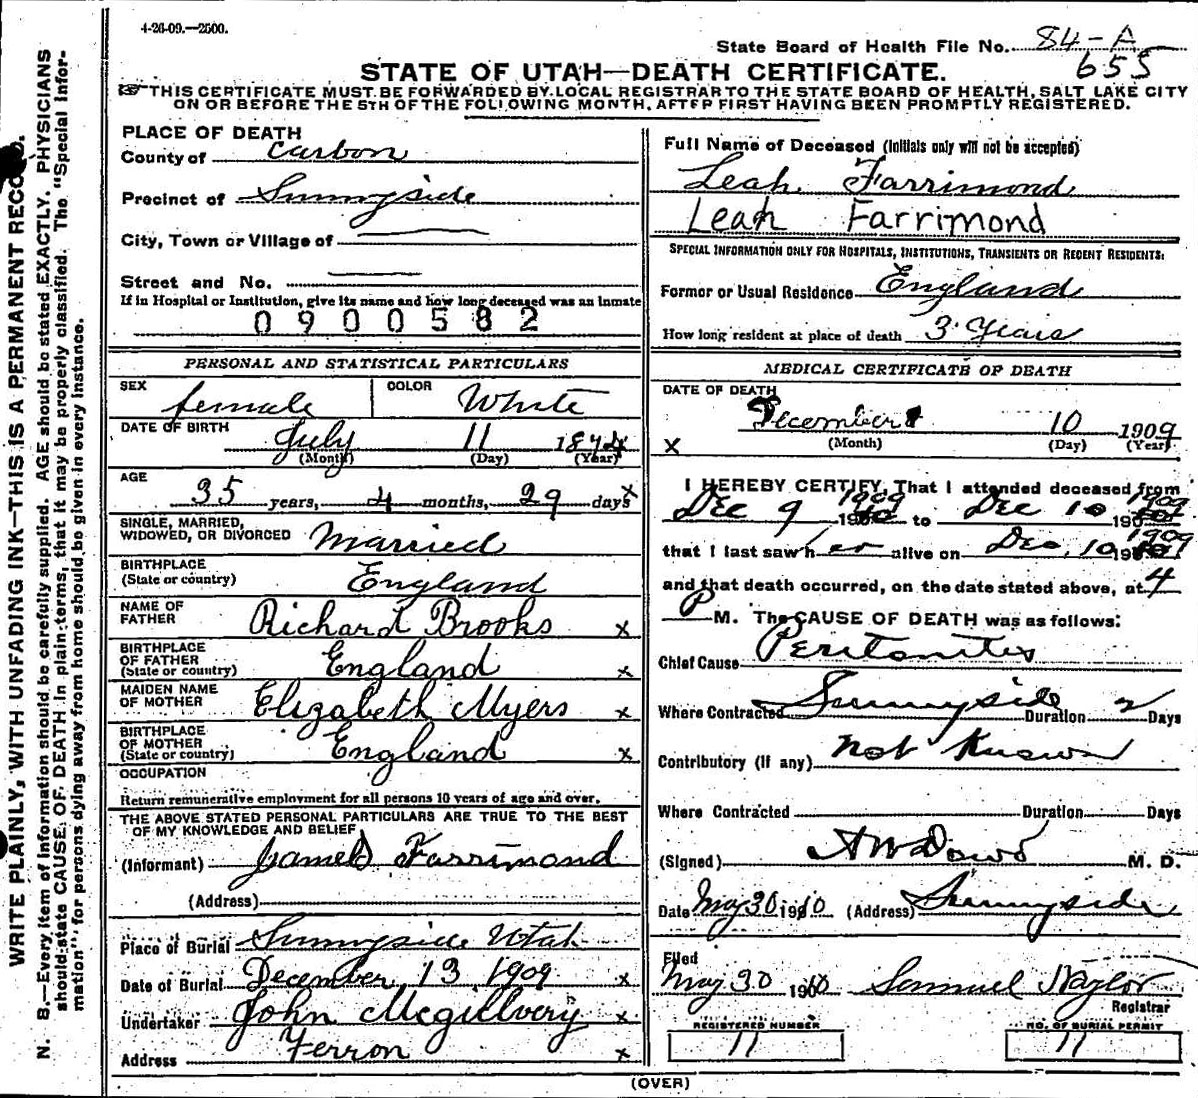 4-26-09.—2500.
State Board of Health File No. 84-A
655
STATE OF UTAH—DEATH CERTIFICATE.
THIS CERTIFICATE MUST BE FORWARDED BY LOCAL REGISTRAR TO THE STATE BOARD OF HEALTH, SALT LAKE CITY
ON OR BEFORE THE 5TH OF THE FOLLOWING MONTH, AFTER FIRST HAVING BEEN PROMPTLY REGISTERED.
WRITE PLAINLY, WITH UNFADING INK—THIS IS A PERMANENT RECORD.
N. B.—Every item of information should be carefully supplied. AGE should be stated EXACTLY. PHYSICIANS
should state CAUSE OF DEATH in plain terms, that it may be properly classified. The "Special Infor-
mation" for persons dying away from home should be given in every instance.
PLACE OF DEATH
County of Carbon
Precinct of Sunnyside
City, Town or Village of
Street and No.
If in Hospital or Institution, give its name and how long deceased was an inmate
0900582
PERSONAL AND STATISTICAL PARTICULARS
SEX female
COLOR White
DATE OF BIRTH July 11 1874
(Month) (Day) (Year)
AGE 35 years, 4 months, 29 days x
SINGLE, MARRIED,
WIDOWED, OR DIVORCED Married
BIRTHPLACE
(State or country) England
NAME OF
FATHER Richard Brooks x
BIRTHPLACE
OF FATHER
(State or country) England x
MAIDEN NAME
OF MOTHER Elizabeth Myers x
BIRTHPLACE
OF MOTHER
(State or country) England x
OCCUPATION
Return remunerative employment for all persons 10 years of age and over.
THE ABOVE STATED PERSONAL PARTICULARS ARE TRUE TO THE BEST
OF MY KNOWLEDGE AND BELIEF
(Informant) James Farrimond
(Address)
Place of Burial Sunnyside Utah
Date of Burial December 13 1909 x
Undertaker John Mcgillvery x
Address Ferron x
Full Name of Deceased (Initials only will not be accepted)
Leah Farrimond
Leah Farrimond
SPECIAL INFORMATION ONLY FOR HOSPITALS, INSTITUTIONS, TRANSIENTS OR RECENT RESIDENTS:
Former or Usual Residence England
How long resident at place of death 3 Years
MEDICAL CERTIFICATE OF DEATH
DATE OF DEATH
x December 10 1909
(Month) (Day) (Year)
I HEREBY CERTIFY, That I attended deceased from
Dec 9 1909 to Dec 10 1909
that I last saw h er alive on Dec, 10 1909
and that death occurred, on the date stated above, at 4
P M. The CAUSE OF DEATH was as follows:
Chief Cause Peritonitis
Where Contracted Sunnyside Duration 2 Days
Contributory (if any) not Known
Where Contracted Duration Days
(Signed) A W Dowd M. D.
Date May 30 1910 (Address) Sunnyside
Filed
May 30 1910 Samuel Naylor
Registrar
REGISTERED NUMBER
11
NO. OF BURIAL PERMIT
11
(OVER)